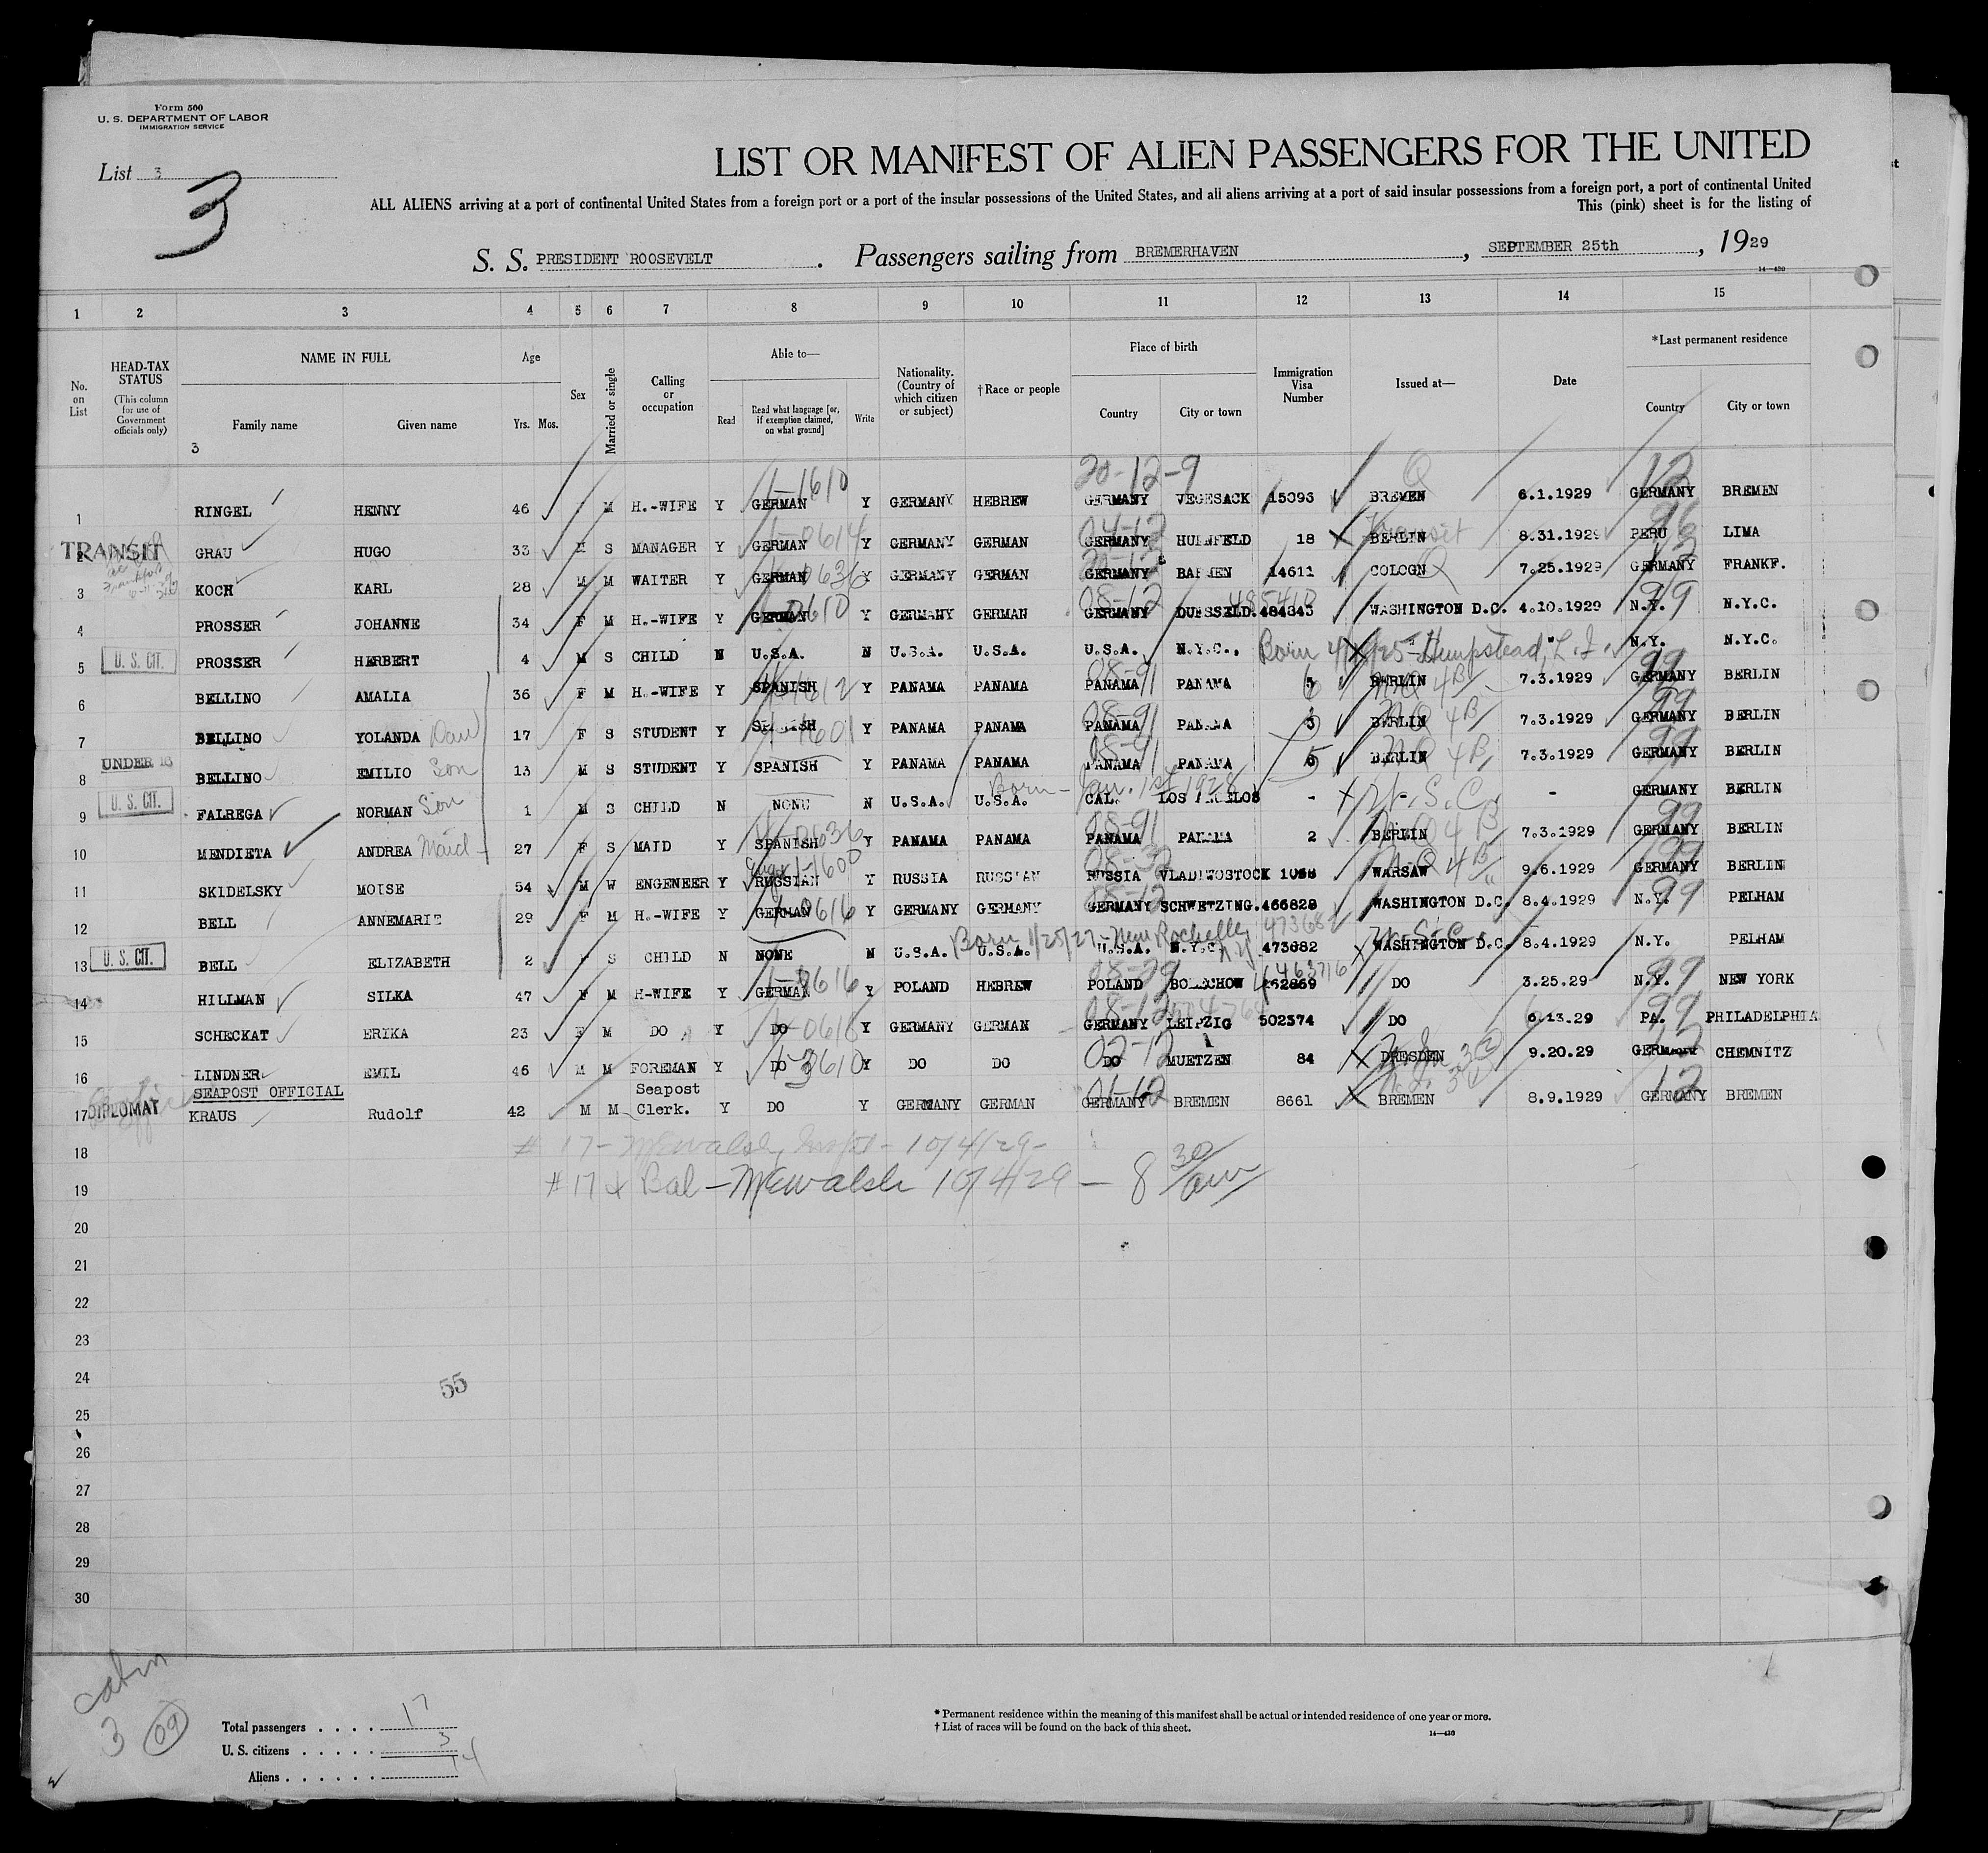 Form 500
U. S. DEPARTMENT OF LABOR
IMMIGRATION SERVICE
List 3
3
LIST OR MANIFEST OF ALIEN PASSENGERS FOR THE UNITED
ALL ALIENS arriving at a port of continental United States from a foreign port or a port of the insular possessions of the United States, and all aliens arriving at a port of said insular possessions from a foreign port, a port of continental United
This (pink) sheet is for the listing of
S. S. PRESIDENT ROOSEVELT . Passengers sailing from BREMERHAVEN , SEPTEMBER 25th , 1929
14—430
1 2 3 4 5 6 7 8 9 10 11 12 13 14 15
No. on List
HEAD-TAX STATUS
(This column for use of Government officials only)
NAME IN FULL
Family name Given name
3
Age
Yrs. Mos.
Sex
Married or single
Calling or occupation
Able to—
Read Read what language [or, if exemption claimed, on what ground] Write
Nationality. (Country of which citizen or subject)
†Race or people
Place of birth
Country City or town
Immigration Visa Number
Issued at—
Date
*Last permanent residence
Country City or town
20-12-9 12
1 RINGEL HENNY 46 M H.-WIFE Y GERMAN 1-1610 Y GERMANY HEBREW GERMANY VEGESACK 15093 BREMEN 6.1.1929 GERMANY BREMEN
TRANSIT
2 GRAU HUGO 33 M S MANAGER Y GERMAN Y GERMANY GERMAN GERMANY HUENFELD 18 BERLIN Transit 8.31.1929 PERU LIMA
3 KOCH KARL 28 M M WAITER Y GERMAN Y GERMANY GERMAN GERMANY BARMEN 14611 COLOGN 7.25.1929 GERMANY FRANKF.
4 PROSSER JOHANNE 34 F M H.-WIFE Y GERMAN 0610 Y GERMANY GERMAN GERMANY 08-12 DUESSELD. 484343 485410 WASHINGTON D.C. 4.10.1929 N.Y. 99 N.Y.C.
5 U. S. CIT. PROSSER HERBERT 4 M S CHILD N U.S.A. N U.S.A. U.S.A. U.S.A. N.Y.C., Hempstead, L.I. N.Y. N.Y.C.
6 BELLINO AMALIA 36 F M H.-WIFE Y SPANISH Y PANAMA PANAMA PANAMA 08-91 PANAMA BERLIN 7.3.1929 GERMANY 99 BERLIN
7 BELLINO YOLANDA 17 F S STUDENT Y SPANISH Y PANAMA PANAMA PANAMA 08-91 PANAMA BERLIN NQ 4B 7.3.1929 GERMANY 99 BERLIN
UNDER 16
8 BELLINO EMILIO Son 13 M S STUDENT Y SPANISH Y PANAMA PANAMA PANAMA 08-91 PANAMA 5 BERLIN NQ 4B 7.3.1929 GERMANY 99 BERLIN
Born - Jan. 1st 1928
9 U. S. CIT. FALREGA NORMAN Son 1 M S CHILD N NONE N U.S.A. U.S.A. CAL. LOS ANGELOS - U.S.C. - GERMANY BERLIN
10 MENDIETA ANDREA Maid 27 F S MAID Y SPANISH Y PANAMA PANAMA PANAMA 08-91 PANAMA 2 BERLIN NQ 4B 7.3.1929 GERMANY 99 BERLIN
11 SKIDELSKY MOISE 54 M W ENGENEER Y RUSSIAN Y RUSSIA RUSSIAN RUSSIA VLADIWOSTOCK WARSAW 9.6.1929 GERMANY 99 BERLIN
12 BELL ANNEMARIE 29 F M H.-WIFE Y GERMAN 0616 Y GERMANY GERMANY GERMANY 08-12 SCHWETZING. 466828 WASHINGTON D.C. 8.4.1929 N.Y. 99 PELHAM
Born 1/25/27 - New Rochelle, N.Y. 473682
13 U. S. CIT. BELL ELIZABETH 2 F S CHILD N NONE N U.S.A. U.S.A. U.S.A. N.Y.C. 473682 WASHINGTON D.C. U.S.C. 8.4.1929 N.Y. PELHAM
14 HILLMAN SILKA 47 F M H-WIFE Y GERMAN 0616 Y POLAND HEBREW POLAND BOLECHOW 462869 463716 DO 3.25.29 N.Y. 99 NEW YORK
15 SCHECKAT ERIKA 23 F M DO Y DO Y GERMANY GERMAN GERMANY 08-12 LEIPZIG 502374 DO 6.13.29 PA. 99 PHILADELPHIA
16 LINDNER EMIL 46 M M FOREMAN Y DO Y DO DO DO 02-12 MUETZEN 84 DRESDEN 9.20.29 GERMANY CHEMNITZ
SEAPOST OFFICIAL Seapost
17 DIPLOMAT KRAUS Rudolf 42 M M Clerk. Y DO Y GERMANY GERMAN GERMANY 01-12 BREMEN 8661 BREMEN 8.9.1929 GERMANY 12 BREMEN
18 # 17 - McWalsh, 10/4/29 -
19 #17 & Bal - McWalsh 10/4/29 - 8 30/am
20
21
22
23
24
55
25
26
27
28
29
30
Cabin
3 09
Total passengers . . . . 17
U. S. citizens . . . . . 3
Aliens . . . . . . 14
* Permanent residence within the meaning of this manifest shall be actual or intended residence of one year or more.
† List of races will be found on the back of this sheet.
14—430